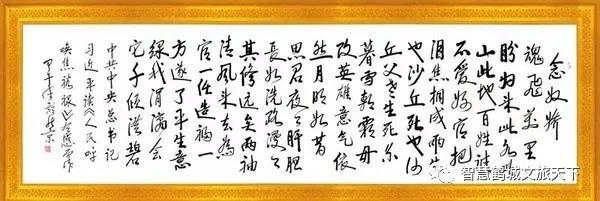 念奴娇
魂飞万里
盼归来此水此
山此地百姓谁
不爱好官把
泪焦桐成雨生
也沙丘死也沙
丘父老生死系
暮雪朝霜毋
改英雄意气依
然月明如昔
思君夜夜肝胆
长如洗路漫漫
其修远矣两袖
清风来去为
官一任造福一
方遂了平生意
绿我涓滴会
它千顷澄碧
中共中央总书记
习近平读《人民呼
唤焦裕禄》
甲午年
智慧鹤城文旅天下